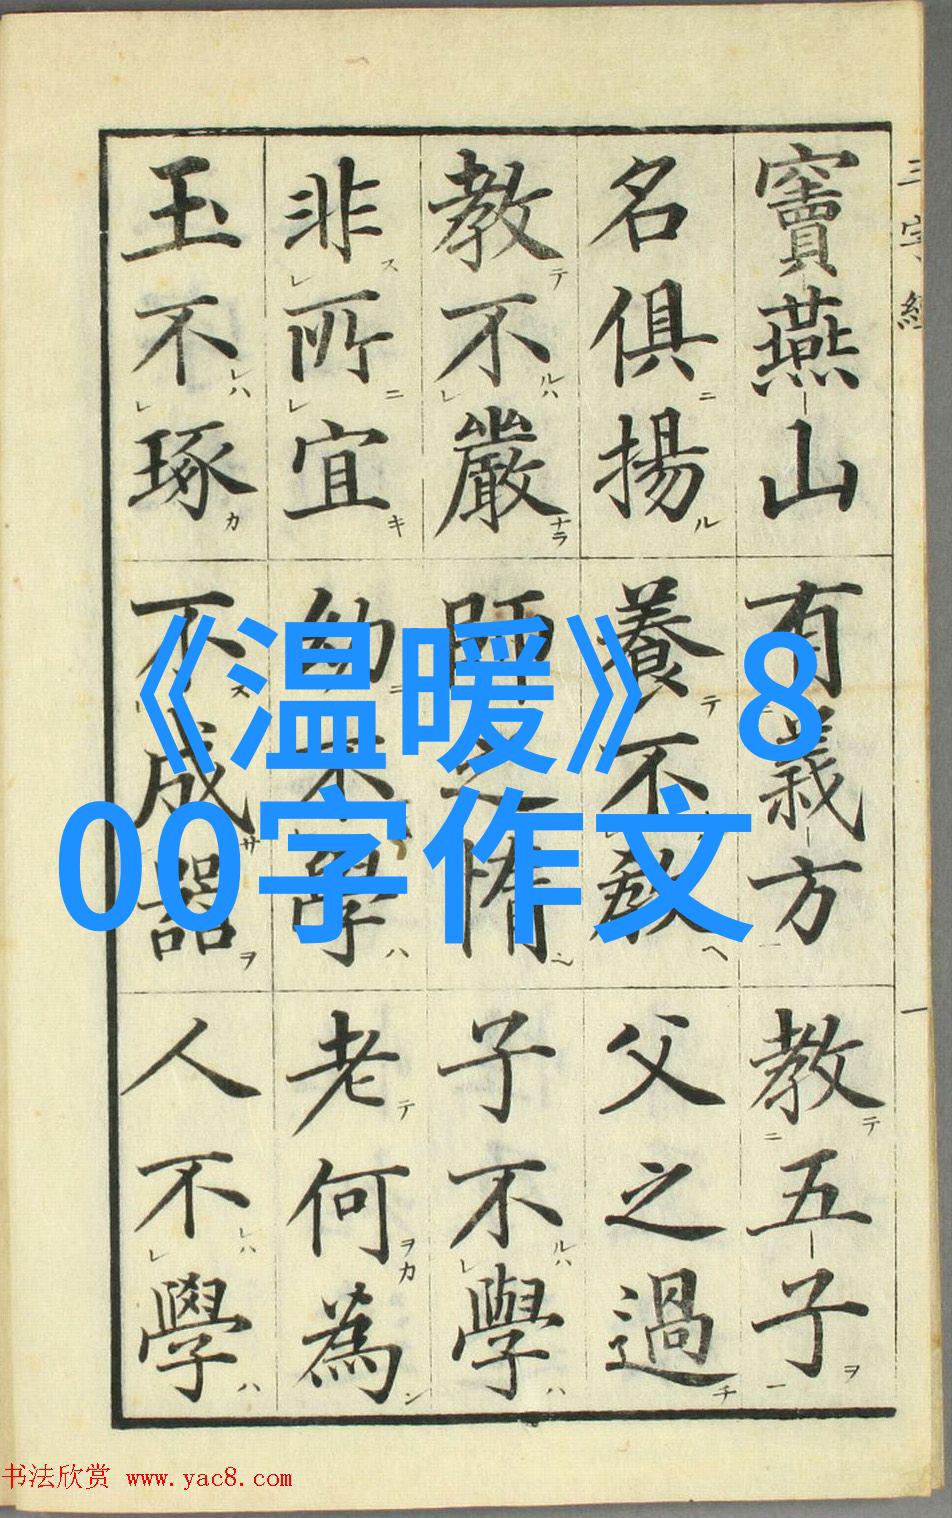 三字經 一
竇燕山有義方教五子
名俱揚養不教父之過
教不嚴師之惰子不學
非所宜幼不學老何為
玉不琢不成器人不學
《温暖》8
00字作文
书法欣赏 www.yac8.com